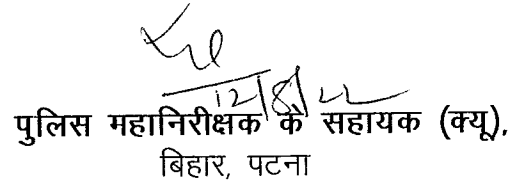 12/8/22
पुलिस महानिरीक्षक के सहायक (क्यू),
बिहार, पटना